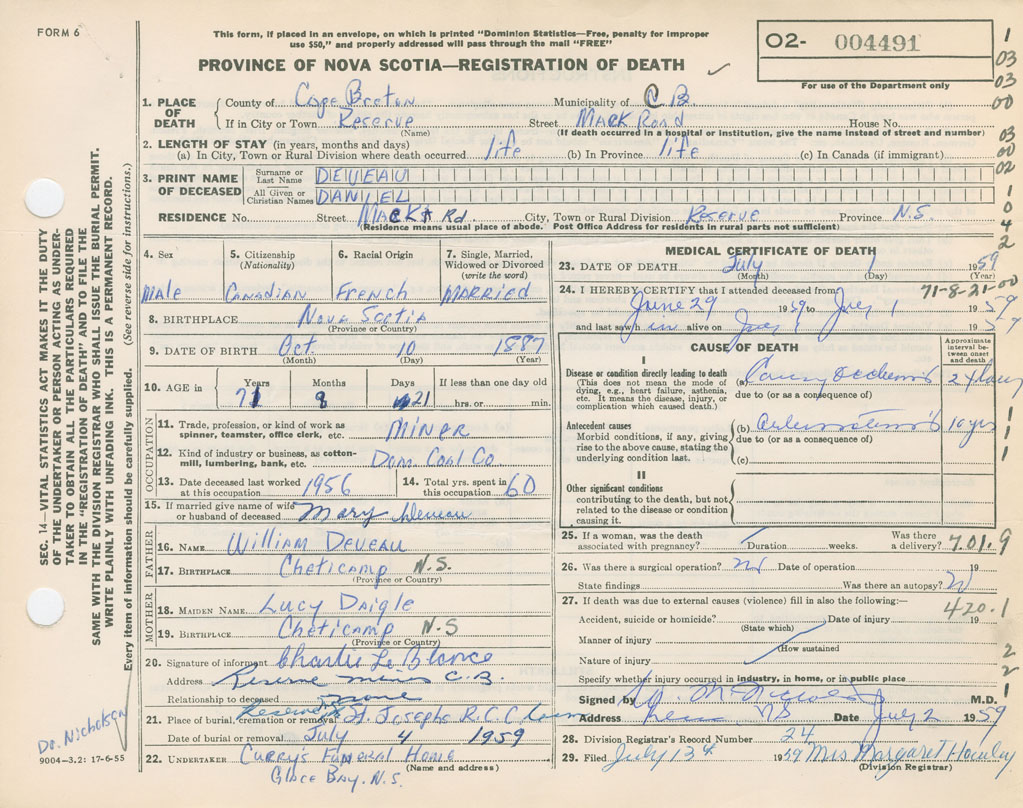 FORM 6
This form, if placed in an envelope, on which is printed "Dominion Statistics—Free, penalty for improper
use $50," and properly addressed will pass through the mail "FREE"
PROVINCE OF NOVA SCOTIA—REGISTRATION OF DEATH
02- 004491
For use of the Department only
1
03
03
00
03
00
02
1
0
4
2
1. PLACE OF DEATH
County of Cape Breton Municipality of C B.
If in City or Town Reserve Street MACK Road House No.
(Name) (If death occurred in a hospital or institution, give the name instead of street and number)
2. LENGTH OF STAY (in years, months and days)
(a) In City, Town or Rural Division where death occurred life (b) In Province life (c) In Canada (if immigrant)
3. PRINT NAME OF DECEASED
Surname or Last Name DEVEAU
All Given or Christian Names DANIEL
RESIDENCE No. Street Mack Rd. City, Town or Rural Division Reserve Province N.S.
(Residence means usual place of abode. Post Office Address for residents in rural parts not sufficient)
4. Sex
Male
5. Citizenship
(Nationality)
Canadian
6. Racial Origin
French
7. Single, Married,
Widowed or Divorced
(write the word)
MARRIED
8. BIRTHPLACE Nova Scotia
(Province or Country)
9. DATE OF BIRTH Oct. 10 1887
(Month) (Day) (Year)
10. AGE in Years Months Days If less than one day old
71 8 21 hrs. or min.
OCCUPATION
11. Trade, profession, or kind of work as
spinner, teamster, office clerk, etc. MINER
12. Kind of industry or business, as cotton-
mill, lumbering, bank, etc. Dom Coal Co.
13. Date deceased last worked
at this occupation 1956
14. Total yrs. spent in
this occupation 60
15. If married give name of wife
or husband of deceased Mary Deveau
FATHER
16. NAME William Deveau
17. BIRTHPLACE Cheticamp N.S.
(Province or Country)
MOTHER
18. MAIDEN NAME Lucy Daigle
19. BIRTHPLACE Cheticamp N.S
(Province or Country)
20. Signature of informant Charlie Le Blance
Address Reserve mines C.B.
Relationship to deceased none
21. Place of burial, cremation or removal Reserve St. Josephs R.C.C
Date of burial or removal July 4 1959
22. UNDERTAKER CURRY'S FUNERAL HOME
(Name and address)
GLACE BAY. N.S.
MEDICAL CERTIFICATE OF DEATH
23. DATE OF DEATH July 1 1959
(Month) (Day) (Year)
71-8-21-00
24. I HEREBY CERTIFY that I attended deceased from
June 29 1959 to July 1 1959
and last saw h im alive on July 1 1959
CAUSE OF DEATH
Approximate
interval be-
tween onset
and death
I
Disease or condition directly leading to death
(This does not mean the mode of
dying, e.g., heart failure, asthenia,
etc. It means the disease, injury, or
complication which caused death.)
(a) 24 hours
due to (or as a consequence of)
Antecedent causes
Morbid conditions, if any, giving
rise to the above cause, stating the
underlying condition last.
(b) 10 yrs
due to (or as a consequence of)
(c)
II
Other significant conditions
contributing to the death, but not
related to the disease or condition
causing it.
25. If a woman, was the death
associated with pregnancy? Duration weeks. Was there
a delivery?
7.01.9
26. Was there a surgical operation? Date of operation 19
State findings Was there an autopsy?
27. If death was due to external causes (violence) fill in also the following:—
420.1
Accident, suicide or homicide? Date of injury 19
(State which)
Manner of injury
(How sustained
Nature of injury
Specify whether injury occurred in industry, in home, or in public place
Signed by M.D.
Address N.S Date July 2 1959
28. Division Registrar's Record Number 24
29. Filed July 13th 1959 Mrs Margaret Howley
(Division Registrar)
SEC. 14—VITAL STATISTICS ACT MAKES IT THE DUTY
OF THE UNDERTAKER OR PERSON ACTING AS UNDER-
TAKER TO OBTAIN ALL THE PARTICULARS REQUIRED
IN THE "REGISTRATION OF DEATH" AND TO FILE THE
SAME WITH THE DIVISION REGISTRAR WHO SHALL ISSUE THE BURIAL PERMIT.
WRITE PLAINLY WITH UNFADING INK. THIS IS A PERMANENT RECORD.
Every item of information should be carefully supplied. (See reverse side for instructions.)
Dr. Nicholson
9004-3.2: 17-6-55